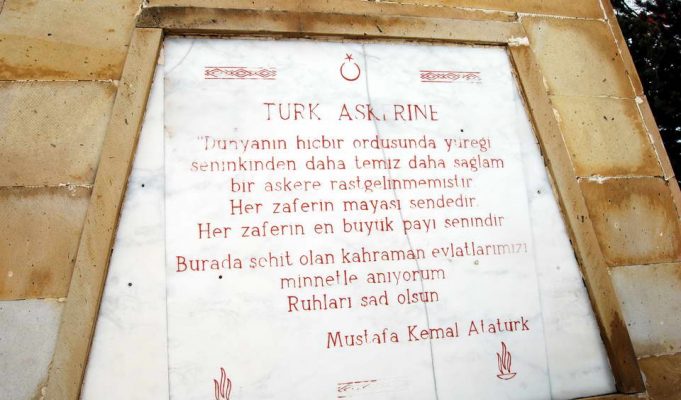 TURK ASKERINE
"Dunyanın hicbir ordusunda yureği
seninkinden daha temiz daha sağlam
bir askere rastgelinmemistir.
Her zaferin mayası sendedir.
Her zaferin en buyuk payı senindir
Burada sehit olan kahraman evlatlarımızı
minnetle anıyorum
Ruhları sad olsun
Mustafa Kemal Ataturk